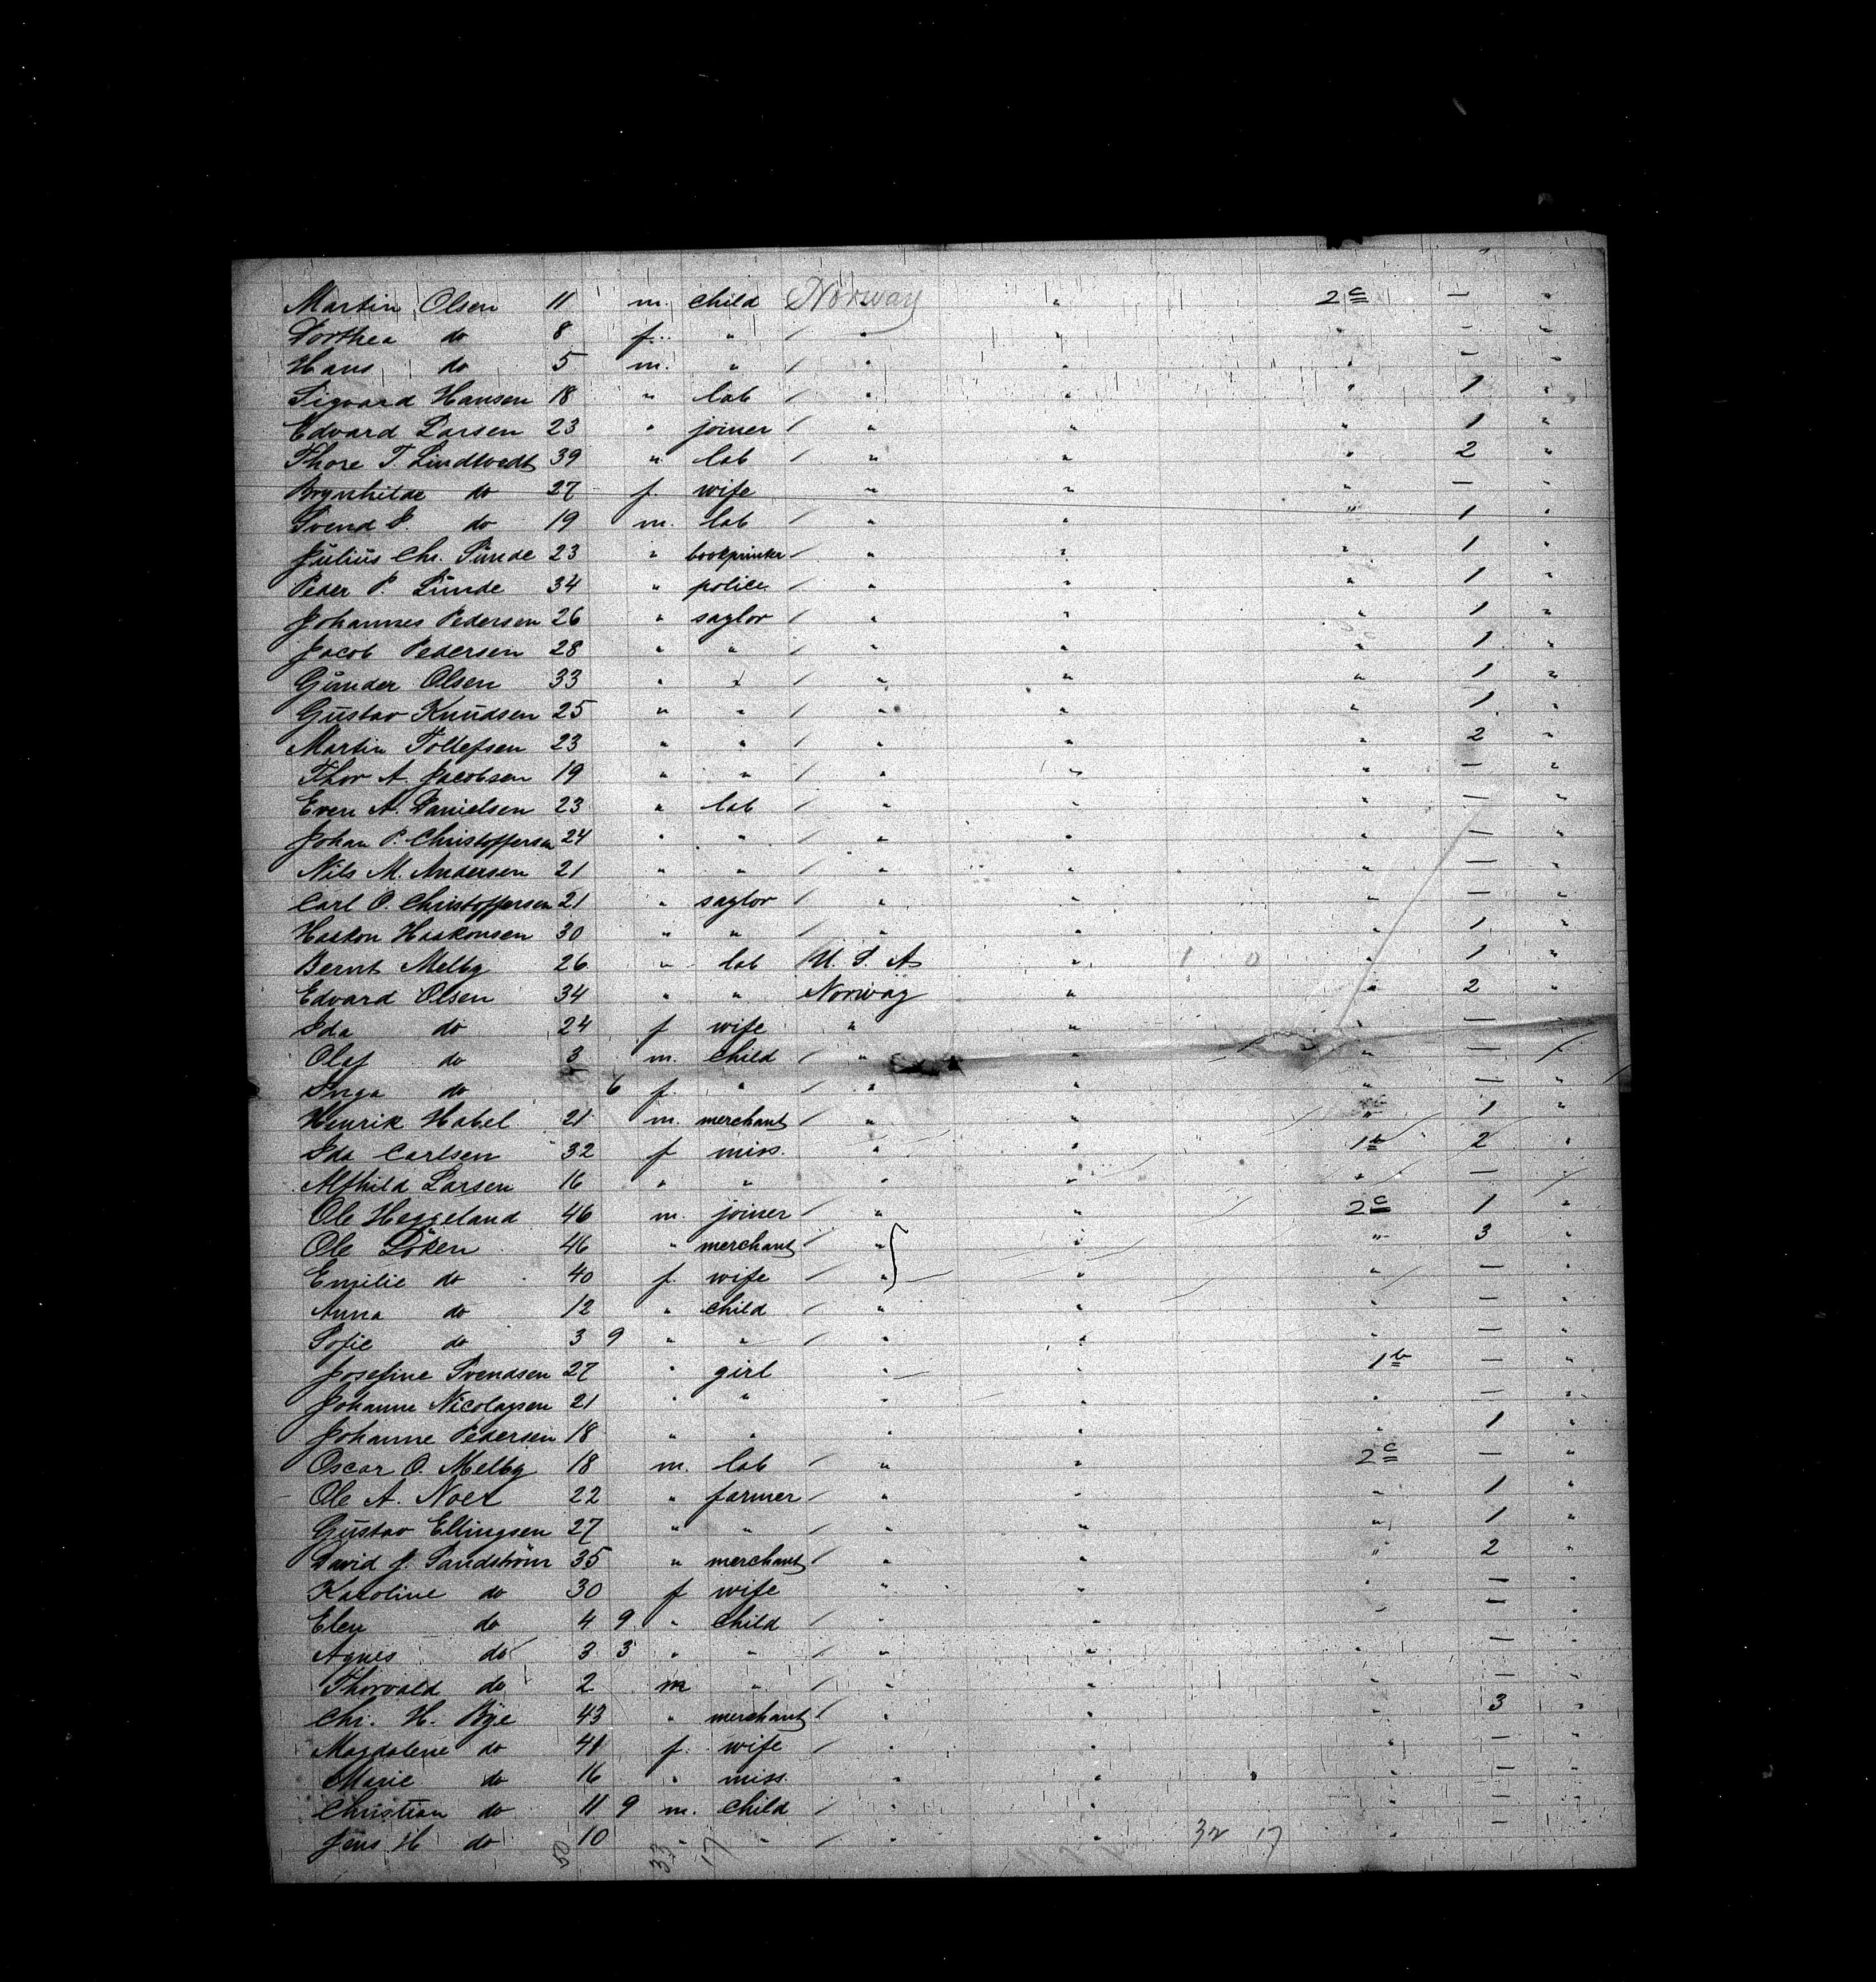 Martin Olsen 11 m. child Norway " 2c — "
Dorthea do 8 f. " " " " — "
Hans do 5 m. " " " " — "
Sigvard Hansen 18 " lab " " " 1 "
Edvard Larsen 23 " joiner " " " 1 "
Thore T. Lindtvedt 39 " lab " " " 2 "
Brynhilde do 27 f. wife " " " — "
Svend do 19 m. lab " " " 1 "
Julius Chr. Sunde 23 " bookprinter " " " 1 "
Peder P. Lunde 34 " police " " " 1 "
Johannes Pedersen 26 " saylor " " " 1 "
Jacob Pedersen 28 " " " " " 1 "
Gunder Olsen 33 " " " " " 1 "
Gustav Knudsen 25 " " " " " 1 "
Martin Tollefsen 23 " " " " " 2 "
Thor A. Jacobsen 19 " " " " " — "
Even A. Danielsen 23 " lab " " " — "
Johan P. Christoffersen 24 " " " " " — "
Nils M. Andersen 21 " " " " " — "
Carl O. Christoffersen 21 " saylor " " " — "
Haakon Haakonsen 30 " " " " " 1 "
Bernt Melby 26 " lab U. S. A " 1 0 " 1 "
Edvard Olsen 34 " " Norway " " 2 "
Ida do 24 f wife " " " — "
Olaf do 3 m. child " " " — "
Inga do 6 f. " " " " — "
Henrik Habel 21 m. merchant " " " 1 "
Ida Carlsen 32 f miss. " " 1b 2 "
Alfhild Larsen 16 " " " " " — "
Ole Heggeland 46 m. joiner " " 2c 1 "
Ole Löken 46 " merchant " " " 3 "
Emilie do 40 f. wife " " " — "
Anna do 12 " child " " " — "
Sofie do 3 9 " " " " " — "
Josefine Svendsen 27 " girl " " 1b — "
Johanne Nicolaysen 21 " " " " " — "
Johanne Pedersen 18 " " " " " 1 "
Oscar O. Melby 18 m. lab " " 2c — "
Ole A. 22 " farmer " " " 1 "
Gustav Ellingsen 27 " " " " " 1 "
David J. Sandström 35 " merchant " " " 2 "
Karoline do 30 f wife " " " — "
Elen do 4 9 " child " " " — "
Agnes do 3 3 " " " " " — "
Thorvald do 2 m " " " " — "
Chr. H. Bye 43 " merchant " " " 3 "
Magdalene do 41 f. wife " " " — "
Marie do 16 " miss. " " " — "
Christian do 11 9 m. child " " " — "
Jens H do 10 " " " " 32 17 " — "
50 33 17